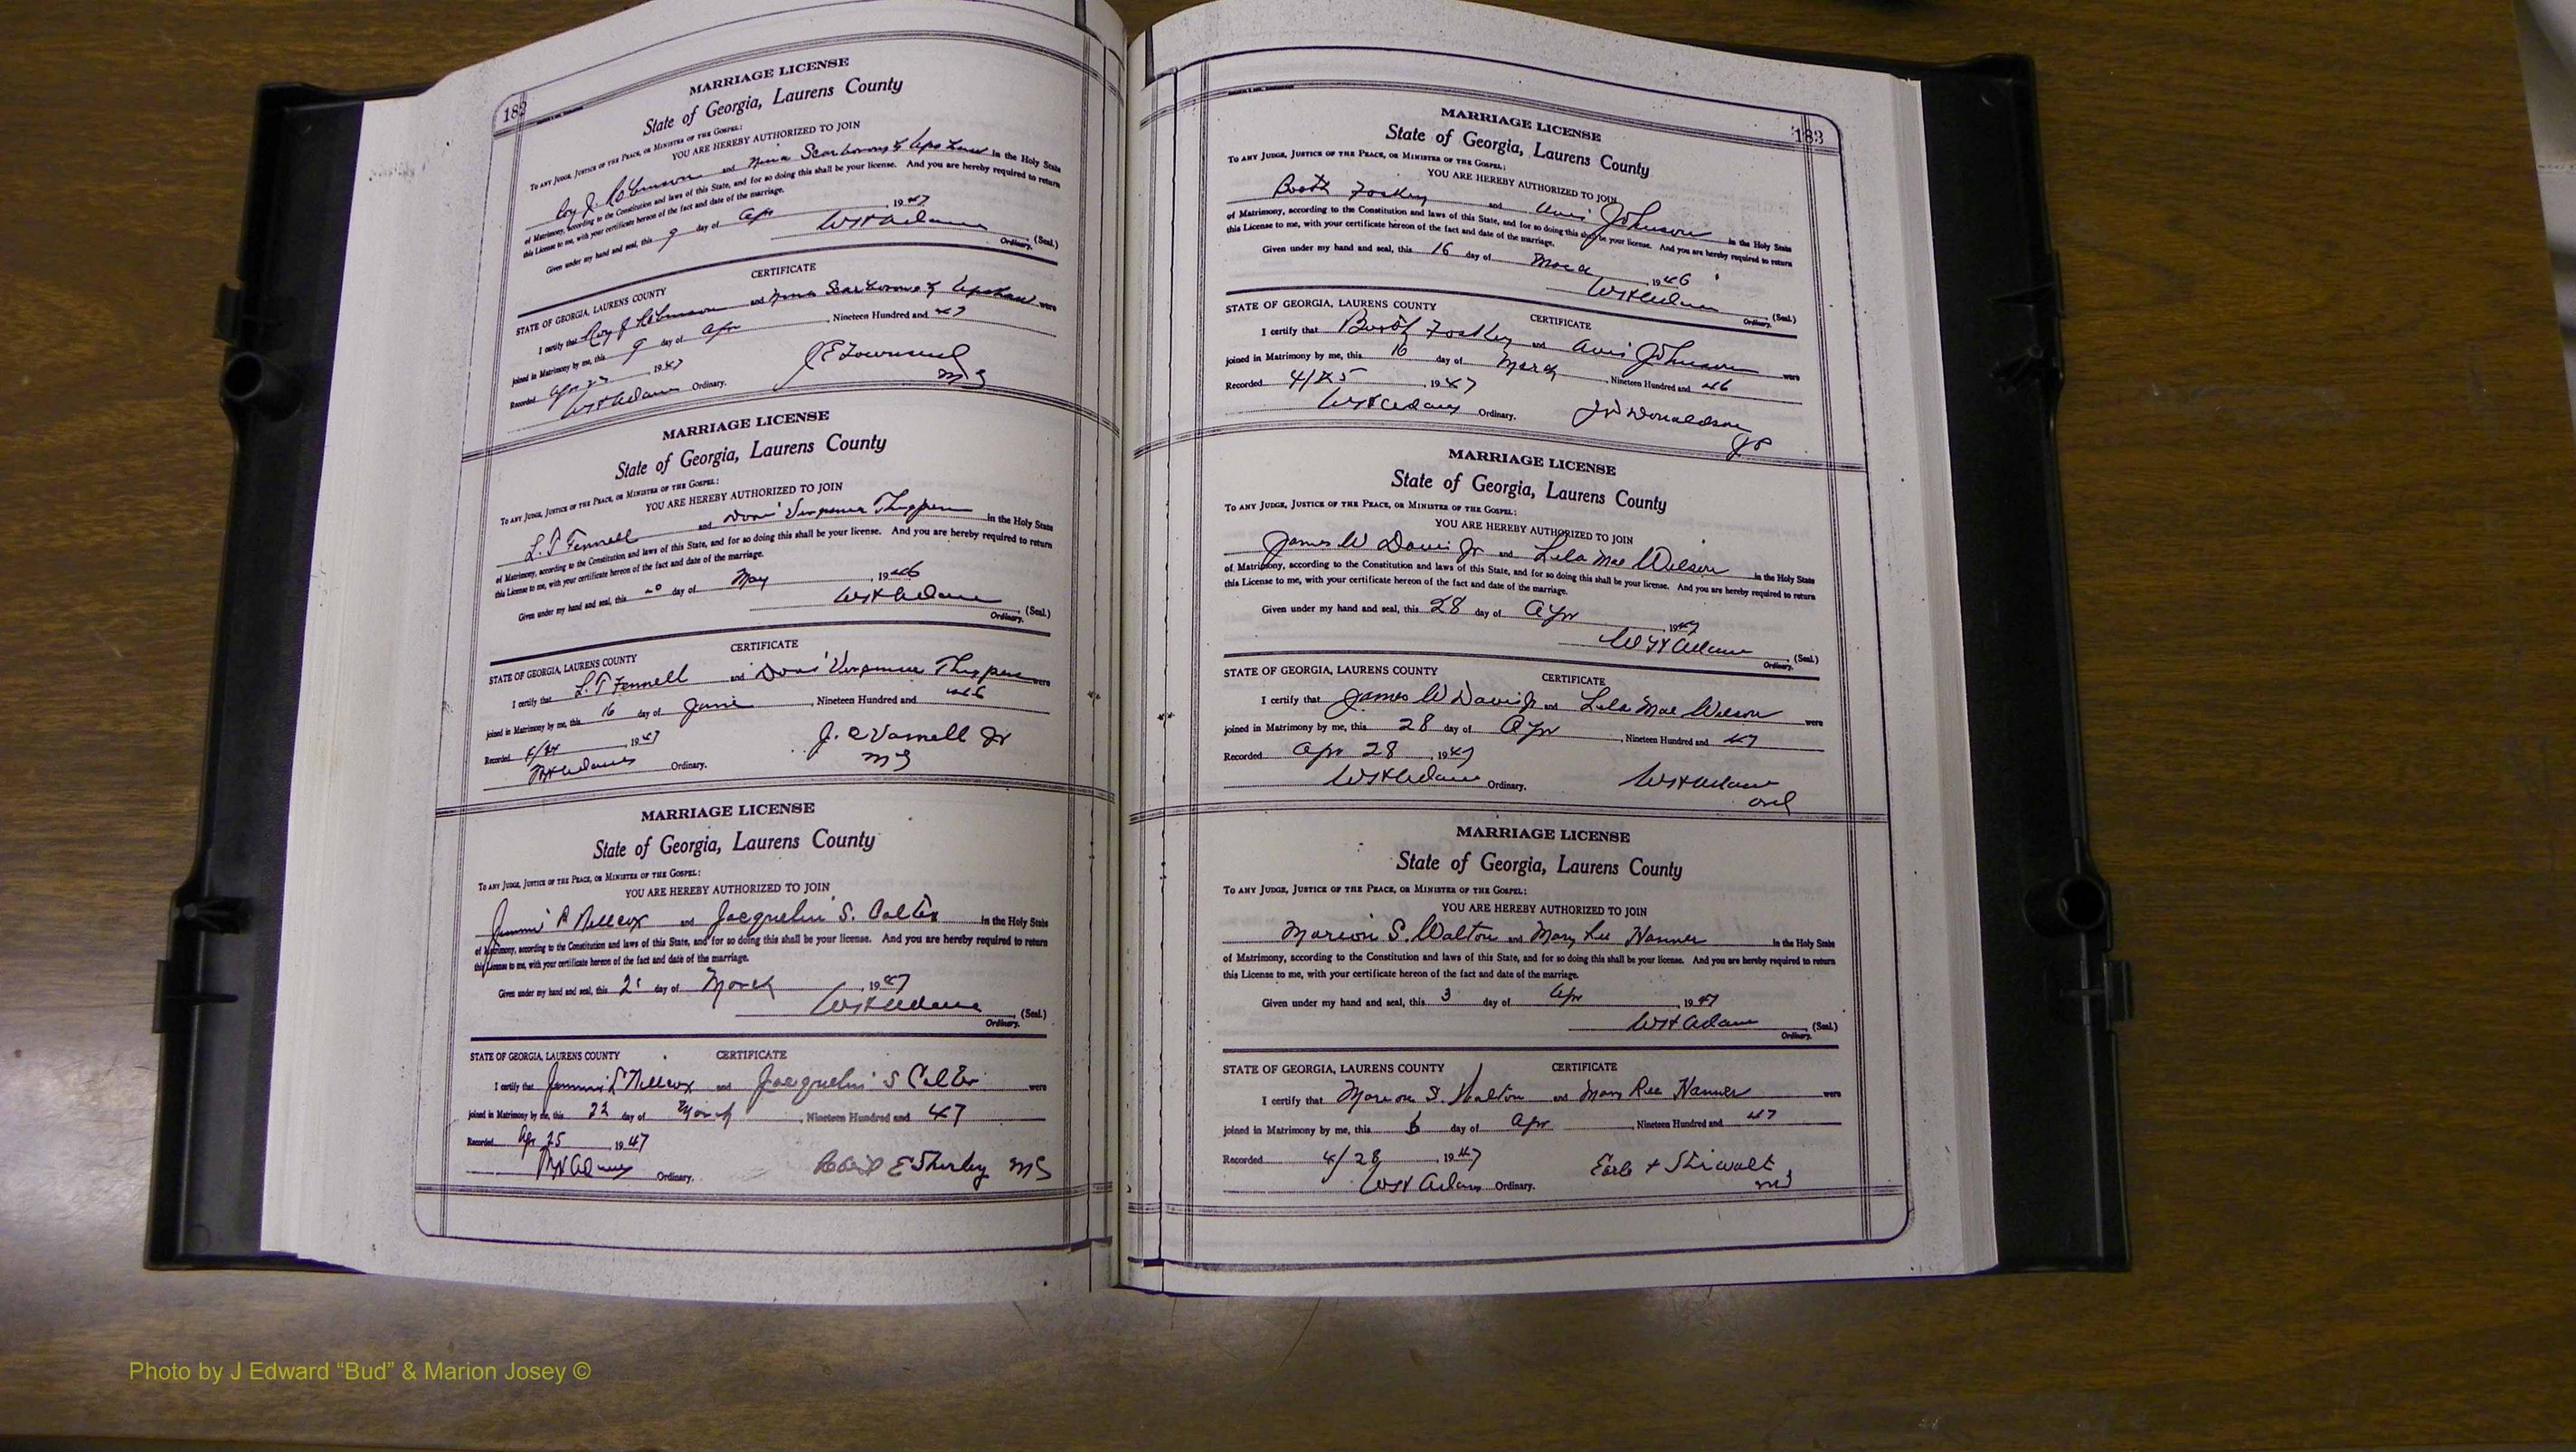 182
MARRIAGE LICENSE
State of Georgia, Laurens County
TO ANY JUDGE, JUSTICE OF THE PEACE, OR MINISTER OF THE GOSPEL:
YOU ARE HEREBY AUTHORIZED TO JOIN
Roy J. Robinson and Nina Scarborough Upshaw in the Holy State
of Matrimony, according to the Constitution and laws of this State, and for so doing this shall be your license. And you are hereby required to return
this License to me, with your certificate hereon of the fact and date of the marriage.
Given under my hand and seal, this 9 day of Apr, 1947
WH Adams (Seal.)
Ordinary.
CERTIFICATE
STATE OF GEORGIA, LAURENS COUNTY
I certify that Roy J Robinson and Nina Scarborough Upshaw were
joined in Matrimony by me, this 9 day of Apr, Nineteen Hundred and 47
Recorded Apr 23, 1947
WH Adams Ordinary.
J E Townsend
MG
MARRIAGE LICENSE
State of Georgia, Laurens County
TO ANY JUDGE, JUSTICE OF THE PEACE, OR MINISTER OF THE GOSPEL:
YOU ARE HEREBY AUTHORIZED TO JOIN
L. T Fennell and Thigpen in the Holy State
of Matrimony, according to the Constitution and laws of this State, and for so doing this shall be your license. And you are hereby required to return
this License to me, with your certificate hereon of the fact and date of the marriage.
Given under my hand and seal, this day of May, 1946
WH Adams (Seal.)
Ordinary.
CERTIFICATE
STATE OF GEORGIA, LAURENS COUNTY
I certify that L. T Fennell and Thigpen were
joined in Matrimony by me, this 16 day of June, Nineteen Hundred and 46
Recorded 4/24, 1947
WH Adams Ordinary.
J. C Varnell Jr
MG
MARRIAGE LICENSE
State of Georgia, Laurens County
TO ANY JUDGE, JUSTICE OF THE PEACE, OR MINISTER OF THE GOSPEL:
YOU ARE HEREBY AUTHORIZED TO JOIN
and Jacquelin S. in the Holy State
of Matrimony, according to the Constitution and laws of this State, and for so doing this shall be your license. And you are hereby required to return
this License to me, with your certificate hereon of the fact and date of the marriage.
Given under my hand and seal, this 21 day of March, 1947
WH Adams (Seal.)
Ordinary.
STATE OF GEORGIA, LAURENS COUNTY CERTIFICATE
I certify that and Jacquelin S were
joined in Matrimony by me, this 22 day of March, Nineteen Hundred and 47
Recorded Apr 25, 1947
WH Adams Ordinary.
Robert E Sherley MG
183
MARRIAGE LICENSE
State of Georgia, Laurens County
TO ANY JUDGE, JUSTICE OF THE PEACE, OR MINISTER OF THE GOSPEL:
YOU ARE HEREBY AUTHORIZED TO JOIN
Booth Foskey and Avis Johnson in the Holy State
of Matrimony, according to the Constitution and laws of this State, and for so doing this shall be your license. And you are hereby required to return
this License to me, with your certificate hereon of the fact and date of the marriage.
Given under my hand and seal, this 16 day of March, 1946
WH Adams (Seal.)
Ordinary.
STATE OF GEORGIA, LAURENS COUNTY CERTIFICATE
I certify that Booth Foskey and Avis Johnson were
joined in Matrimony by me, this 16 day of March, Nineteen Hundred and 46
Recorded 4/25, 1947
WH Adams Ordinary.
Donaldson
JP
MARRIAGE LICENSE
State of Georgia, Laurens County
TO ANY JUDGE, JUSTICE OF THE PEACE, OR MINISTER OF THE GOSPEL:
YOU ARE HEREBY AUTHORIZED TO JOIN
James W Davis Jr and Lula Mae Wilson in the Holy State
of Matrimony, according to the Constitution and laws of this State, and for so doing this shall be your license. And you are hereby required to return
this License to me, with your certificate hereon of the fact and date of the marriage.
Given under my hand and seal, this 28 day of Apr, 1947
WH Adams (Seal.)
Ordinary.
STATE OF GEORGIA, LAURENS COUNTY CERTIFICATE
I certify that James W Davis Jr and Lula Mae Wilson were
joined in Matrimony by me, this 28 day of Apr, Nineteen Hundred and 47
Recorded Apr 28, 1947
WH Adams Ordinary.
WH Adams
Ord
MARRIAGE LICENSE
State of Georgia, Laurens County
TO ANY JUDGE, JUSTICE OF THE PEACE, OR MINISTER OF THE GOSPEL:
YOU ARE HEREBY AUTHORIZED TO JOIN
Marion S. Walton and Mary Lee Hanner in the Holy State
of Matrimony, according to the Constitution and laws of this State, and for so doing this shall be your license. And you are hereby required to return
this License to me, with your certificate hereon of the fact and date of the marriage.
Given under my hand and seal, this 3 day of Apr, 1947
WH Adams (Seal.)
Ordinary.
STATE OF GEORGIA, LAURENS COUNTY CERTIFICATE
I certify that Marion S. Walton and Mary Hanner were
joined in Matrimony by me, this 6 day of Apr, Nineteen Hundred and 47
Recorded 4/28, 1947
WH Adams Ordinary.
Earle Stirwalt
Photo by J Edward “Bud” & Marion Josey ©